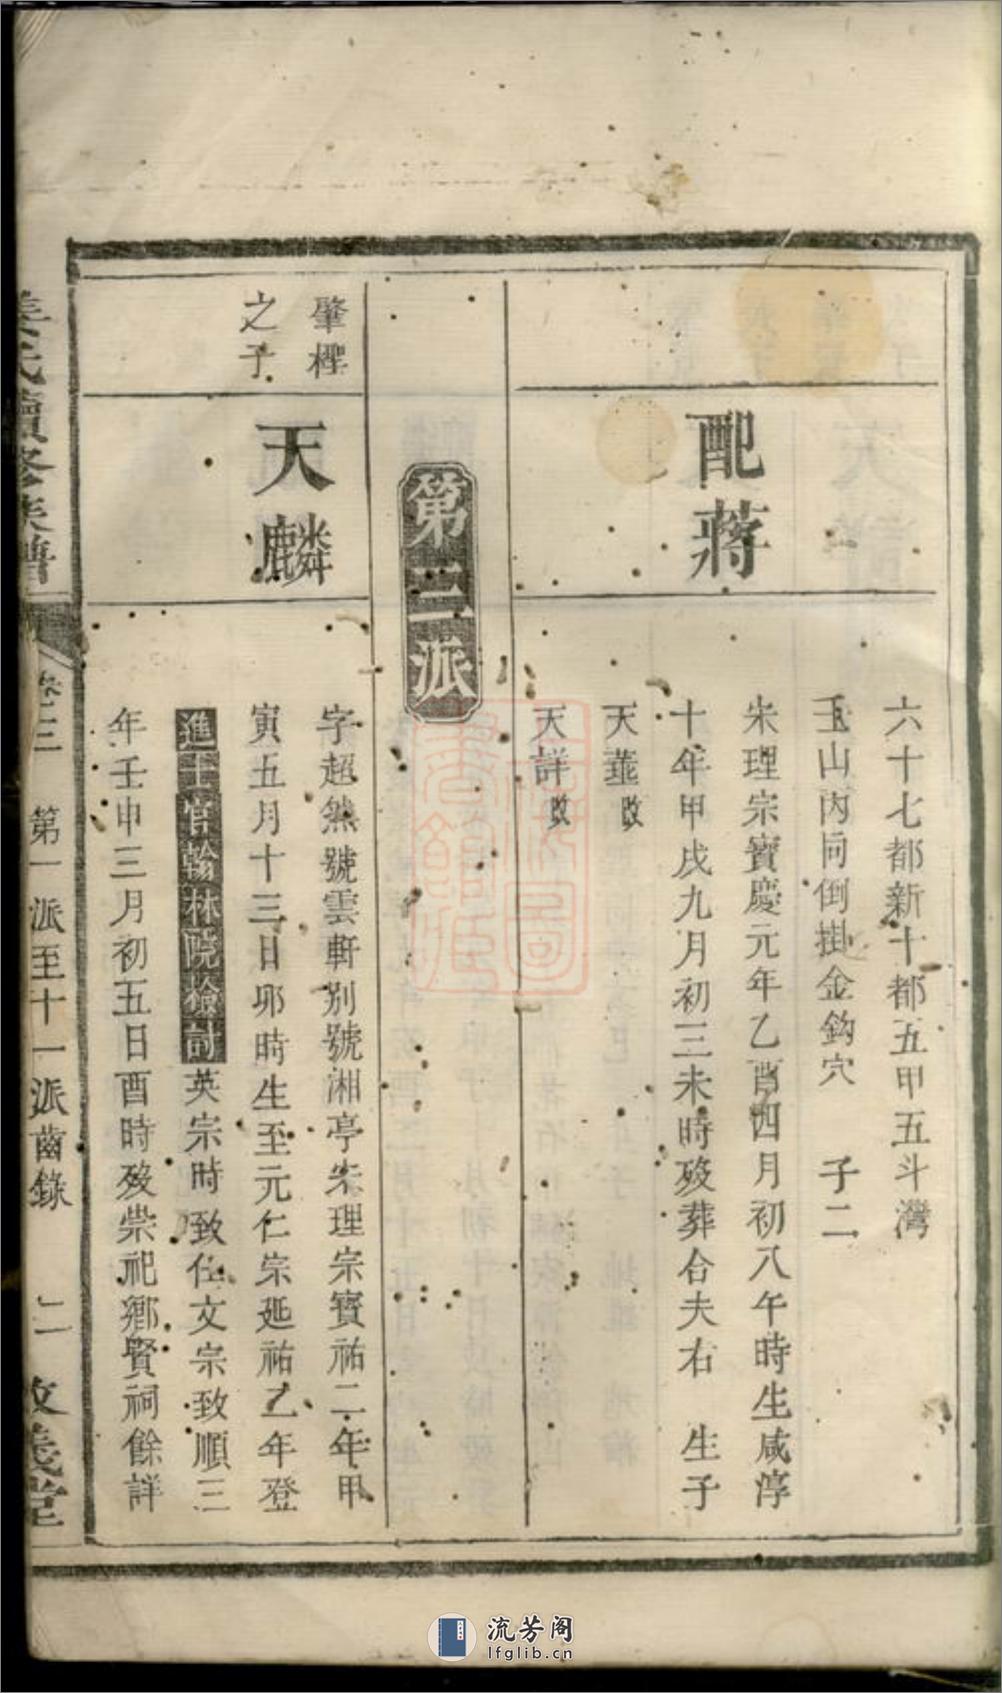 六十七都新十都五甲五斗灣
玉山內向倒掛金鈎穴　子二
配蔣
宋理宗寶慶元年乙酉四月初八午時生咸淳
十年甲戌九月初三未時殁葬合夫右　生子
天蓶改
天詳改
第三派
肇樫
之子
天麟
字超然號雲軒別號湘亭宋理宗寶祐二年甲
寅五月十三日卯時生至元仁宗延祐乙年登
進士官翰林院檢討英宗時致仕文宗致順三
年壬申三月初五日酉時殁崇祀鄉賢祠餘詳
姜氏續修族譜
卷三　第一派至十一派齒錄　二　敦義堂
流芳阁
lfglib.cn